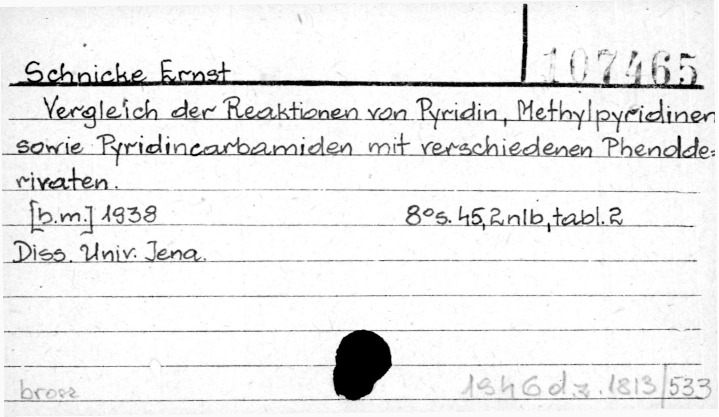 107465
Schnicke Ernst
Vergleich der Reaktionen von Pyridin, Methylpyridinen
sowie Pyridincarbamiden mit verschiedenen Phenolde=
rivaten.
[b.m.] 1938 8°s. 45, 2 nlb, tabl. 2
Diss. Univ. Jena.
brosz 1946 dz. 1813/533